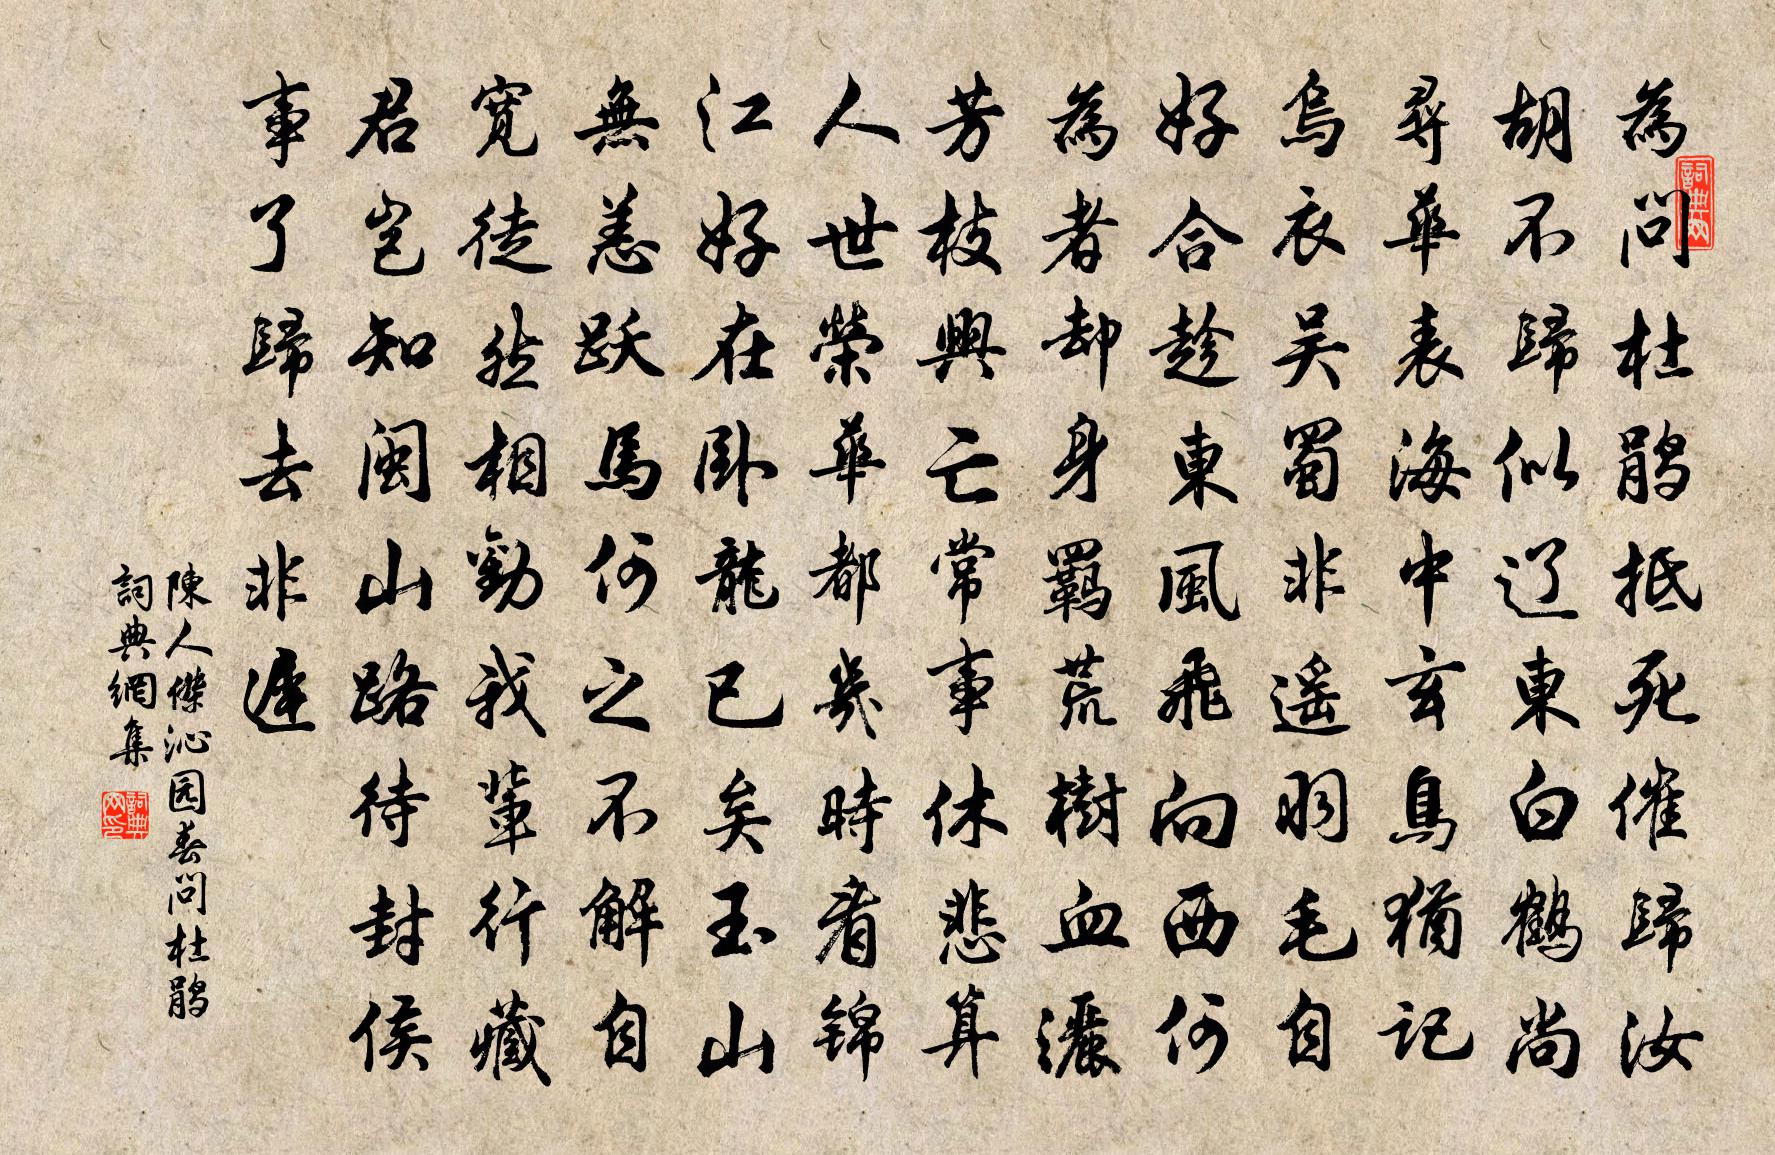 為問杜鹃抵死催歸汝
胡不歸似辽東白鶴尚
尋華表海中玄鳥猶記
烏衣吴蜀非遥羽毛自
好合趁東風飛向西何
為者却身羈荒樹血灑
芳枝興亡常事休悲算
人世榮華都幾時看锦
江好在卧龍已矣玉山
無恙跃馬何之不解自
寬徒然相勸我輩行藏
君岂知闽山路待封侯
事了歸去非遲
陳人傑沁园春問杜鹃
詞典網集
詞典網
詞典網印